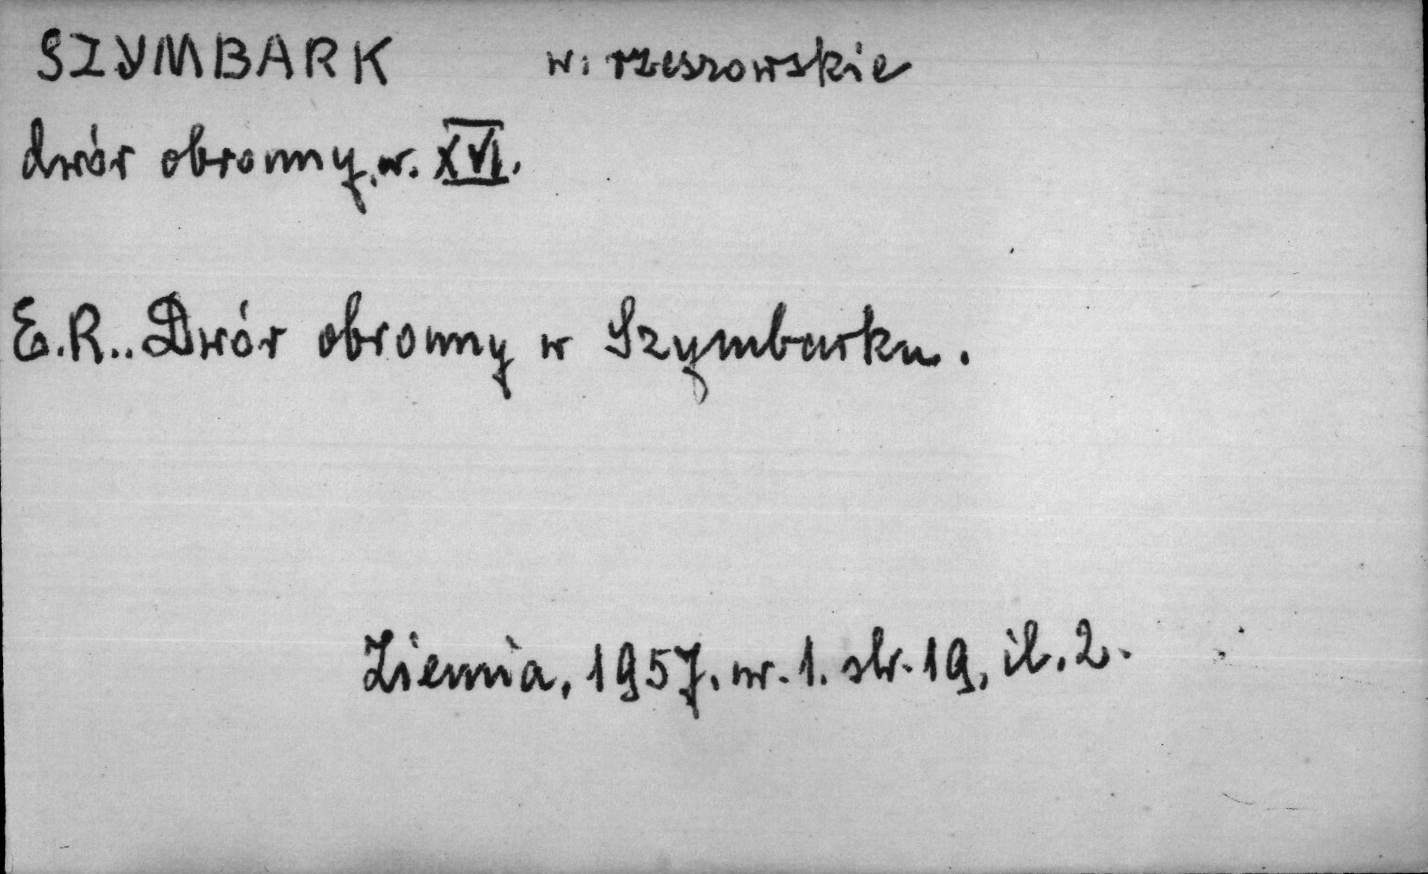 SZYMBARK w. rzeszowskie
dwór obronny, w. XVI.
E.R.. Dwór obronny w Szymbarku.
Ziemia, 1957. nr. 1. str. 19, il. 2.